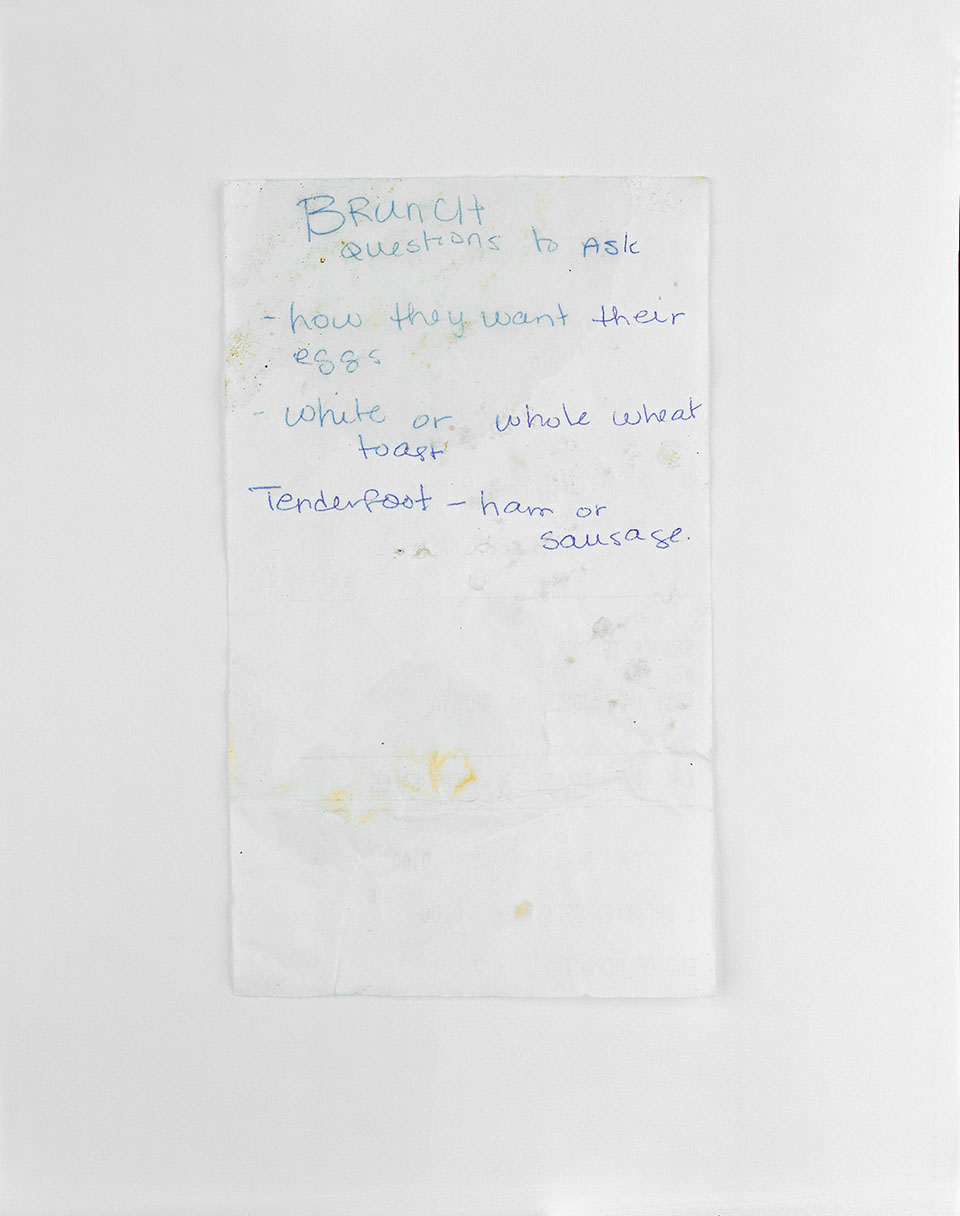 BRunCH
Questions to Ask
- how they want their
eggs
- white or whole wheat
toast
Tenderfoot - ham or
sausage.